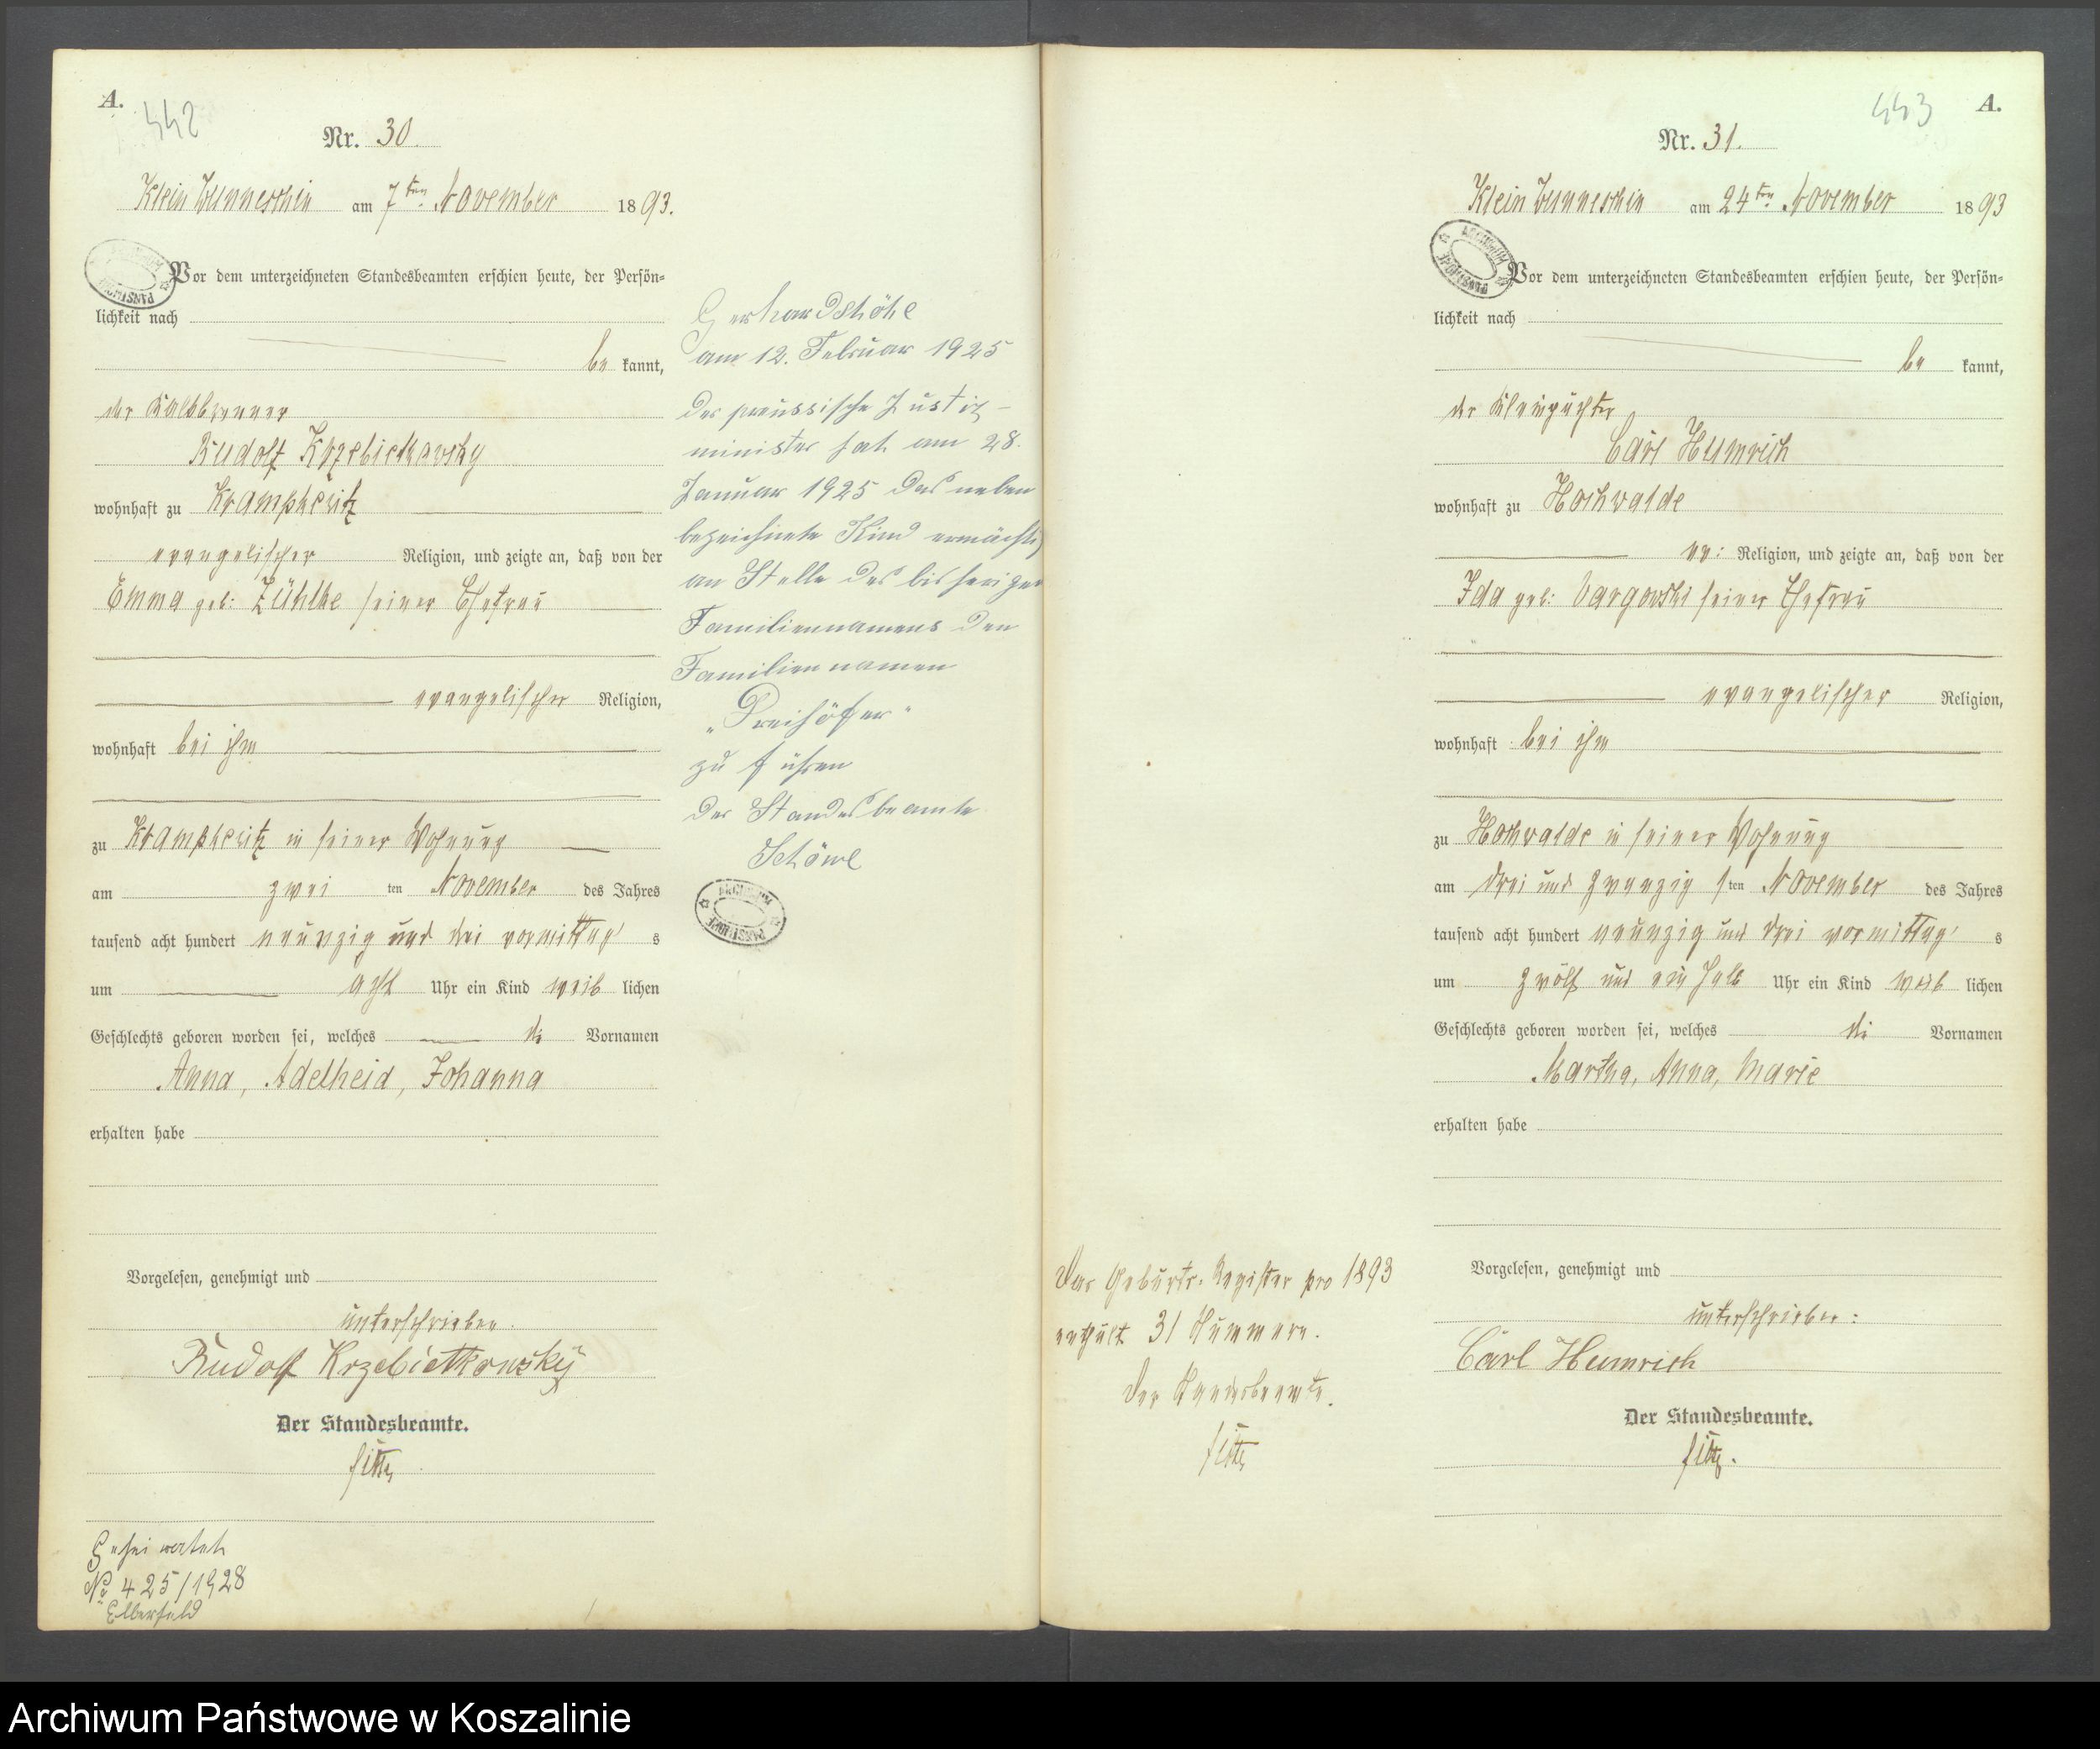 A.
442
Nr. 30.
Klein Wunneschin am 7ten November 1893.
Vor dem unterzeichneten Standesbeamten erschien heute, der Persön-
lichkeit nach
be kannt,
der Kalkbrenner
Rudolf Krzebietkowsky
wohnhaft zu Krampkewitz
evangelischer Religion, und zeigte an, daß von der
Emma geb: Zühlke seiner Ehefrau
evangelischer Religion,
wohnhaft bei ihm
zu Krampkewitz in seiner Wohnung
am zwei ten November des Jahres
tausend acht hundert neunzig und drei vormittag s
um acht Uhr ein Kind weib lichen
Geschlechts geboren worden sei, welches die Vornamen
Anna, Adelheid, Johanna
erhalten habe
Vorgelesen, genehmigt und
unterschrieben.
Rudolf Krzebietkowsky
Der Standesbeamte.
Geheiratet
No 425/1928
Elberfeld
Gerhardshöhe
am 12. Februar 1925
Der preussische Justiz-
minister hat am 28.
Januar 1925 das neben
bezeichnete Kind ermächtigt
an Stelle des bisherigen
Familiennamens den
Familiennamen
„Dreihöfer"
zu führen
Der Standesbeamte
ARCHIWUM PAŃSTWOWE
443
A.
Nr. 31.
Klein Wunneschin am 24ten November 1893
ARCHIWUM PAŃSTWOWE
Vor dem unterzeichneten Standesbeamten erschien heute, der Persön-
lichkeit nach
be kannt,
der Kleinpächter
Carl Humrich
wohnhaft zu Hochwalde
ev: Religion, und zeigte an, daß von der
Ida geb: Vargowski seiner Ehefrau
evangelischer Religion,
wohnhaft bei ihm
zu Hochwalde in seiner Wohnung
am drei und zwanzig sten November des Jahres
tausend acht hundert neunzig und drei vormittag s
um zwölf und ein halb Uhr ein Kind weib lichen
Geschlechts geboren worden sei, welches die Vornamen
Martha, Anna, Marie
erhalten habe
Vorgelesen, genehmigt und
unterschrieben:
Carl Humrich
Der Standesbeamte.
Das Geburts-Register pro 1893
enthält 31 Nummern.
Der Standesbeamte.
Archiwum Państwowe w Koszalinie